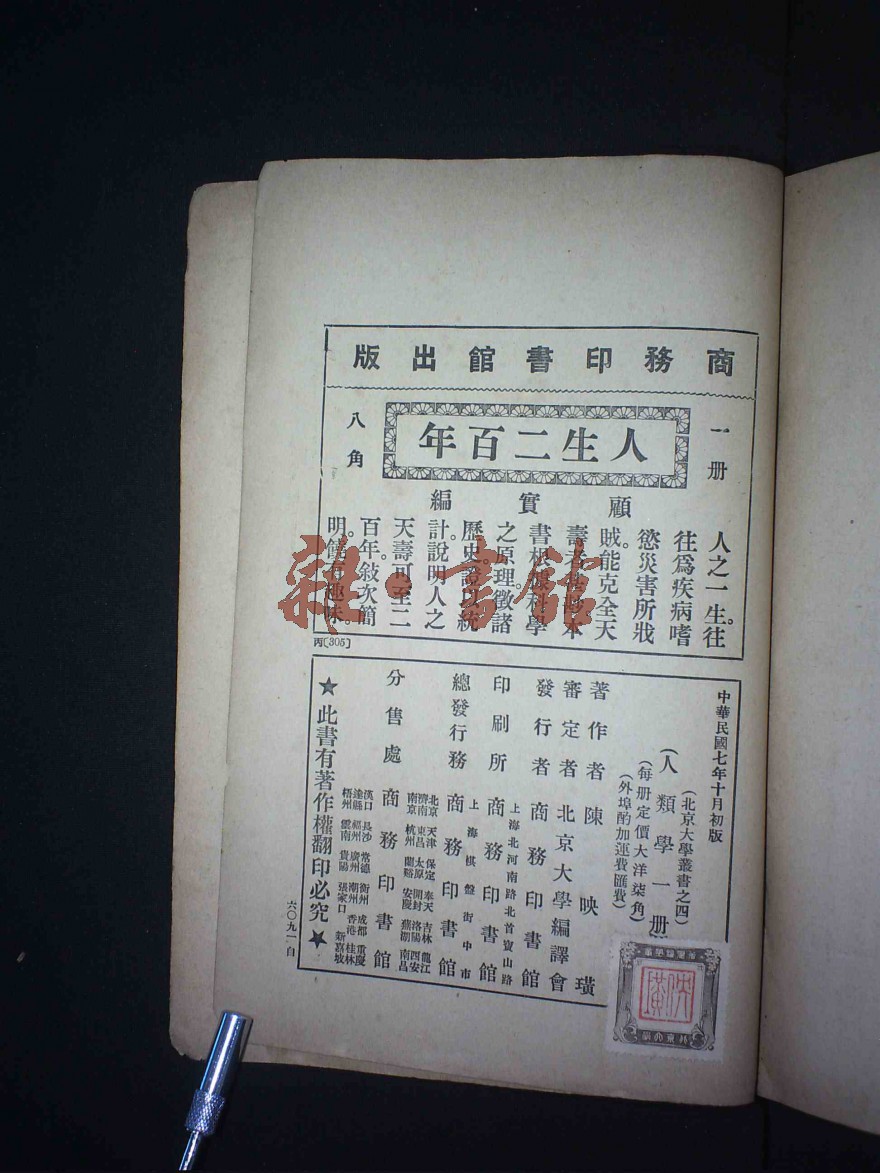 商務印書館出版
一册
人生二百年
八角
顧實編
人之一生。往
往爲疾病嗜
慾災害所戕
賊。能克全天
壽者
本
書根據科學
之原理。徵諸
歷史。證以統
計。說明人之
天壽可至二
百年。敍次簡
明。饒有趣味。
丙〔305〕
雜·書館
中華民國七年十月初版
(北京大學叢書之四)
(人類學一册)
(每册定價大洋柒角)
(外埠酌加運費匯費)
著作者 陳映璜
審定者 北京大學編譯會
發行者 商務印書館
上海北河南路北首寶山路
印刷所 商務印書館
上海棋盤街中市
總發行務 商務印書館
北京 天津 保定 奉天 吉林 龍江
濟南 東昌 太原 開封 洛陽 西安
南京 杭州 蘭谿 安慶 蕪湖 南昌
分售處 商務印書館
漢口 長沙 常德 衡州 成都 重慶
達縣 福州 廣州 潮州 香港 桂林
梧州 雲南 貴陽 張家口 新嘉坡
★此書有著作權翻印必究★
六〇九一自